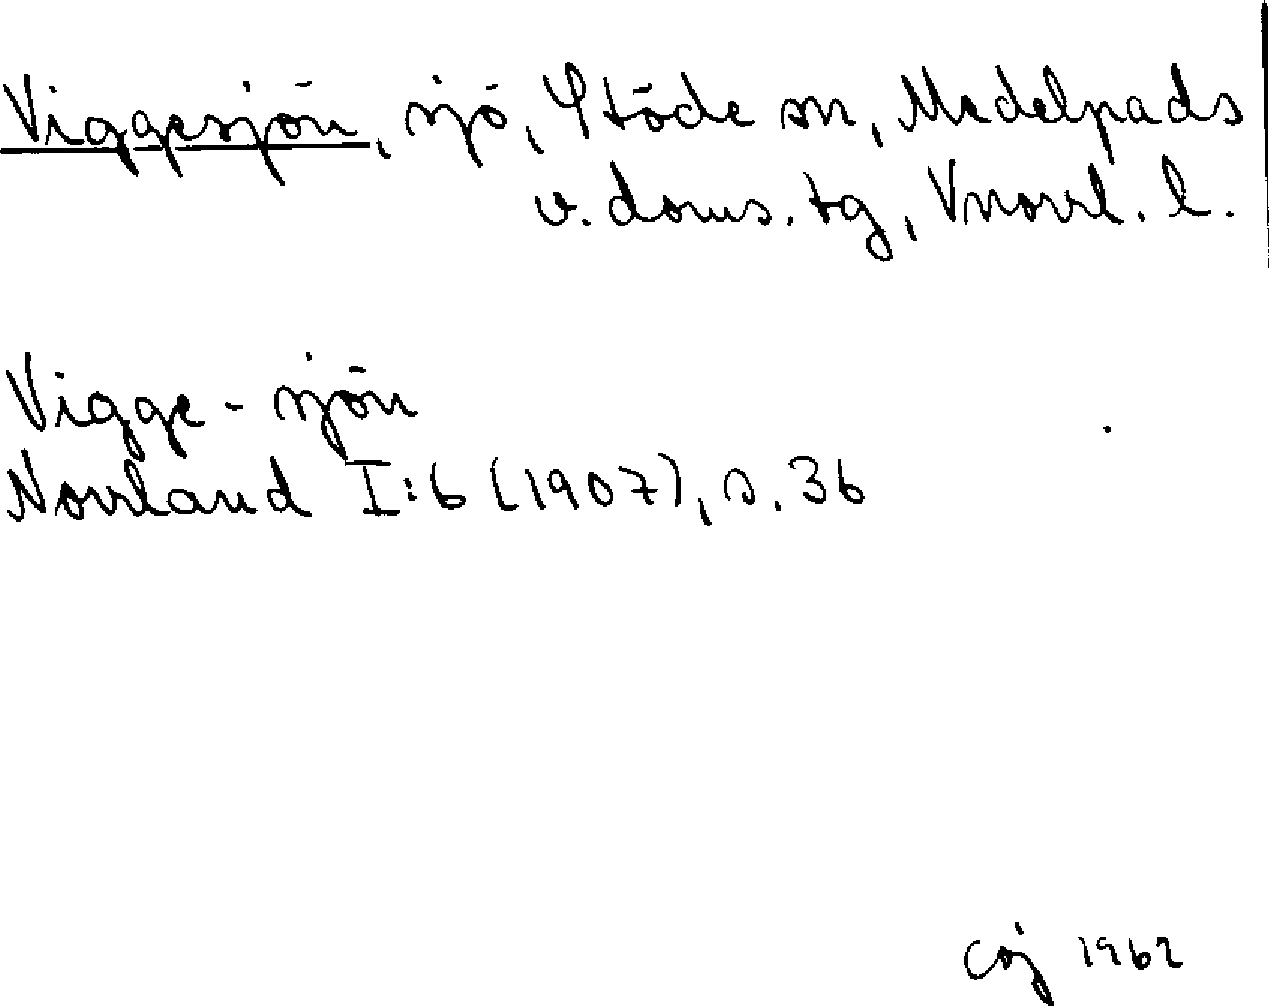 Viggesjön, sjö, Stöde sn, Medelpads
v. doms. tg, Vnorrl. l.
Vigge-sjön
Norrland I:6 (1907), s. 36
1962